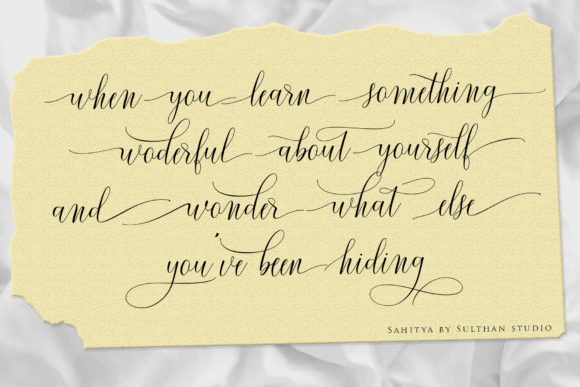 when you learn something
woderful about yourself
and wonder what else
you've been hiding
Sahitya by Sulthan studio